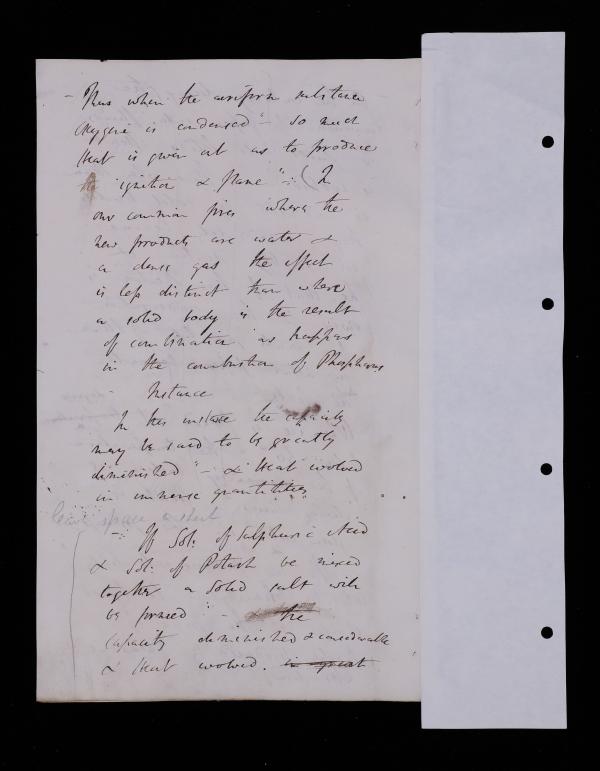 - Thus when the aeriform substance
Oxygene is condensed" - so much
Heat is given out as to produce
the "ignition & flame" - : (In
our common fires where the
new products are water &
a dense gas the effect
is less distinct than where
a solid body is the result
of combination as happens
in the combustion of Phosphorus
- Instance
In this instance the capacity
may be said to be greatly
diminished" - & Heat evolved
in immense quantities
leave space
- If Sol: of Sulphuric Acid
& Sol: of Potash be mixed
together a solid salt will
be formed - the
capacity diminished & considerable
& Heat evolved. in great